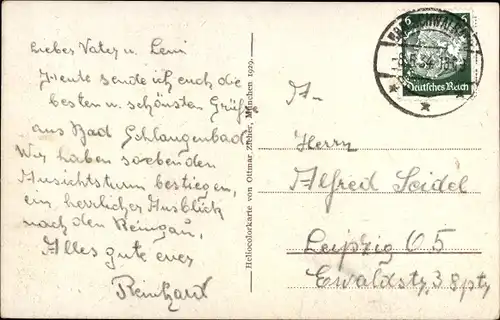 Lieber Vater u. Leni
Heute sende ich euch die
besten u. schönsten Grüße
aus Bad Schlangenbad
Wir haben soebenden
Aussichtsturm bestiegen,
ein herrlicher Ausblick
nach den Reingau,
Alles gute euer
Reinhard
Heliocolorkarte von Ottmar Zieher, München 1929.
6 6
Deutsches Reich
A-
Herrn
Alfred Seidel
Leipzig O5
Ewaldstr, 3 gptr